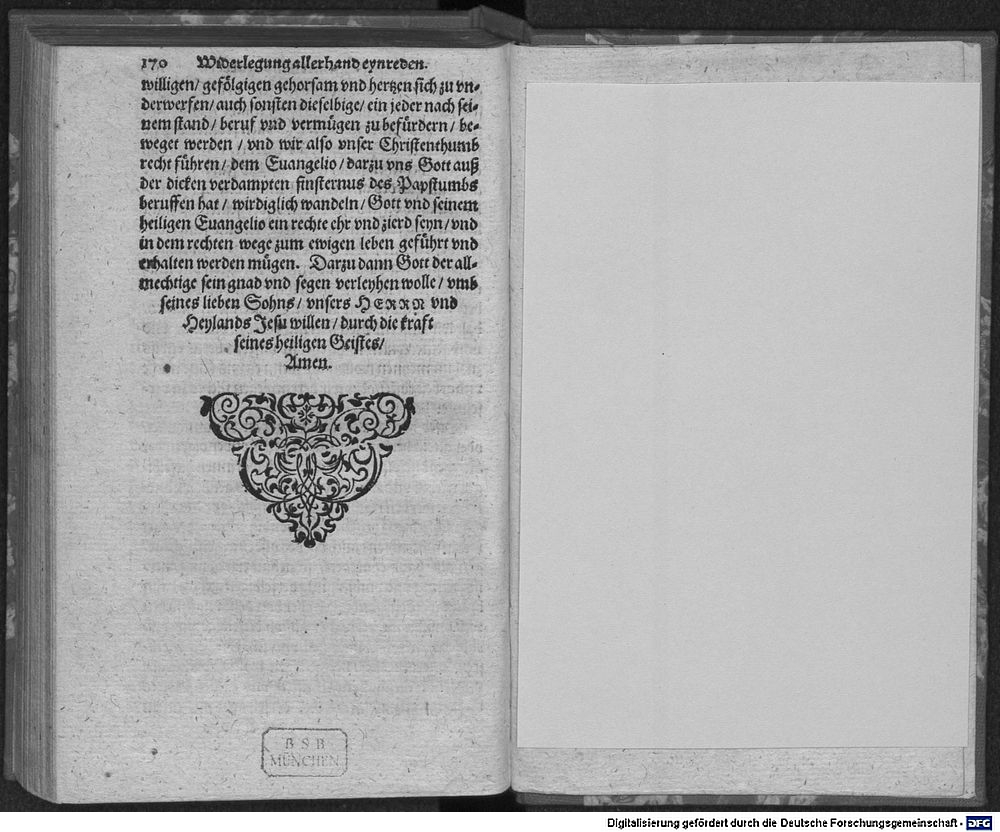 170 Widerlegung allerhand eynreden.
willigen/ gefölgigen gehorsam vnd hertzen sich zu vn-
derwerfen/ auch sonsten dieselbige/ ein jeder nach sei-
nem stand/ beruf vnd vermügen zu befürdern/ be-
weget werden / vnd wir also vnser Christenthumb
recht führen/ dem Euangelio/ darzu vns Gott auß
der dicken verdampten finsternus des Papstumbs
beruffen hat/ wirdiglich wandeln/ Gott vnd seinem
heiligen Euangelio ein rechte ehr vnd zierd seyn/ vnd
in dem rechten wege zum ewigen leben geführt vnd
erhalten werden mügen. Darzu dann Gott der all-
mechtige sein gnad vnd segen verleyhen wolle/ vmb
seines lieben Sohns/ vnsers HERRN vnd
Heylands Jesu willen/ durch die kraft
seines heiligen Geistes/
Amen.
BSB
MÜNCHEN
Digitalisierung gefördert durch die Deutsche Forschungsgemeinschaft - DFG